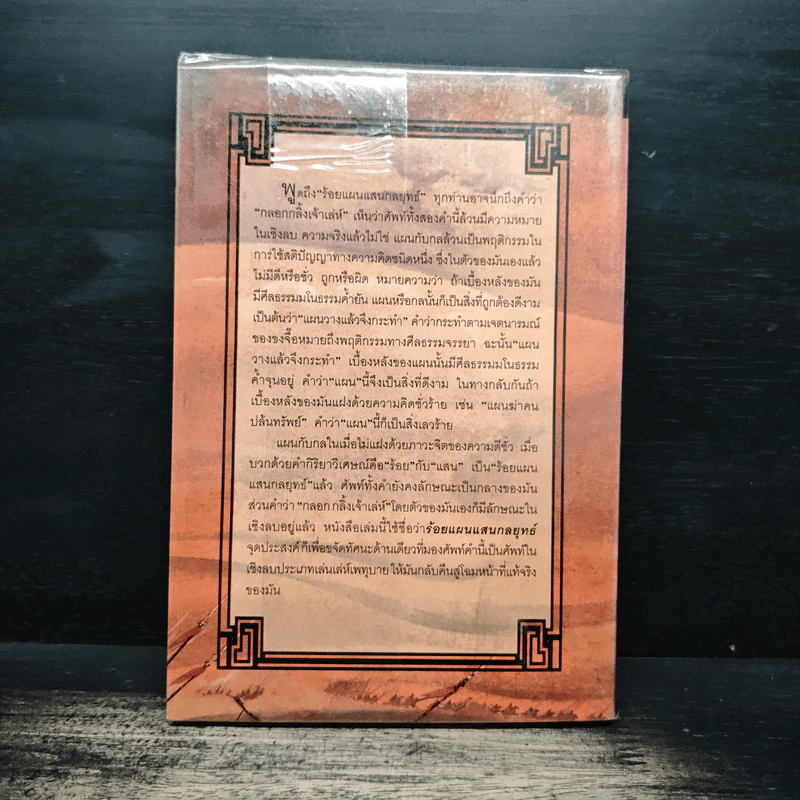 พูดถึง“ร้อยแผนแสนกลยุทธ์” ทุกท่านอาจนึกถึงคำว่า
“กลอกกลิ้งเจ้าเล่ห์” เห็นว่าศัพท์ทั้งสองคำนี้ล้วนมีความหมาย
ในเชิงลบ ความจริงแล้วไม่ใช่ แผนกับกลล้วนเป็นพฤติกรรมใน
การใช้สติปัญญาทางความคิดชนิดหนึ่ง ซึ่งในตัวของมันเองแล้ว
ไม่มีดีหรือชั่ว ถูกหรือผิด หมายความว่า ถ้าเบื้องหลังของมัน
มีศีลธรรมมโนธรรมค้ำยัน แผนหรือกลนั้นก็เป็นสิ่งที่ถูกต้องดีงาม
เป็นต้นว่า“แผนวางแล้วจึงกระทำ” คำว่ากระทำตามเจตนารมณ์
ของขงจื๊อหมายถึงพฤติกรรมทางศีลธรรมจรรยา ฉะนั้น“แผน
วางแล้วจึงกระทำ” เบื้องหลังของแผนนั้นมีศีลธรรมมโนธรรม
ค้ำจุนอยู่ คำว่า“แผน”นี้จึงเป็นสิ่งที่ดีงาม ในทางกลับกันถ้า
เบื้องหลังของมันแฝงด้วยความคิดชั่วร้าย เช่น “แผนฆ่าคน
ปล้นทรัพย์” คำว่า“แผน”นี้ก็เป็นสิ่งเลวร้าย
แผนกับกลในเมื่อไม่แฝงด้วยภาวะจิตของความดีชั่ว เมื่อ
บวกด้วยคำกิริยาวิเศษณ์คือ“ร้อย”กับ“แสน” เป็น“ร้อยแผน
แสนกลยุทธ์”แล้ว ศัพท์ทั้งคำยังคงลักษณะเป็นกลางของมัน
ส่วนคำว่า “กลอกกลิ้งเจ้าเล่ห์”โดยตัวของมันเองก็มีลักษณะใน
เชิงลบอยู่แล้ว หนังสือเล่มนี้ใช้ชื่อว่าร้อยแผนแสนกลยุทธ์
จุดประสงค์ก็เพื่อขจัดทัศนะด้านเดียวที่มองศัพท์คำนี้เป็นศัพท์ใน
เชิงลบประเภทเล่นเล่ห์เพทุบาย ให้มันกลับคืนสู่โฉมหน้าที่แท้จริง
ของมัน